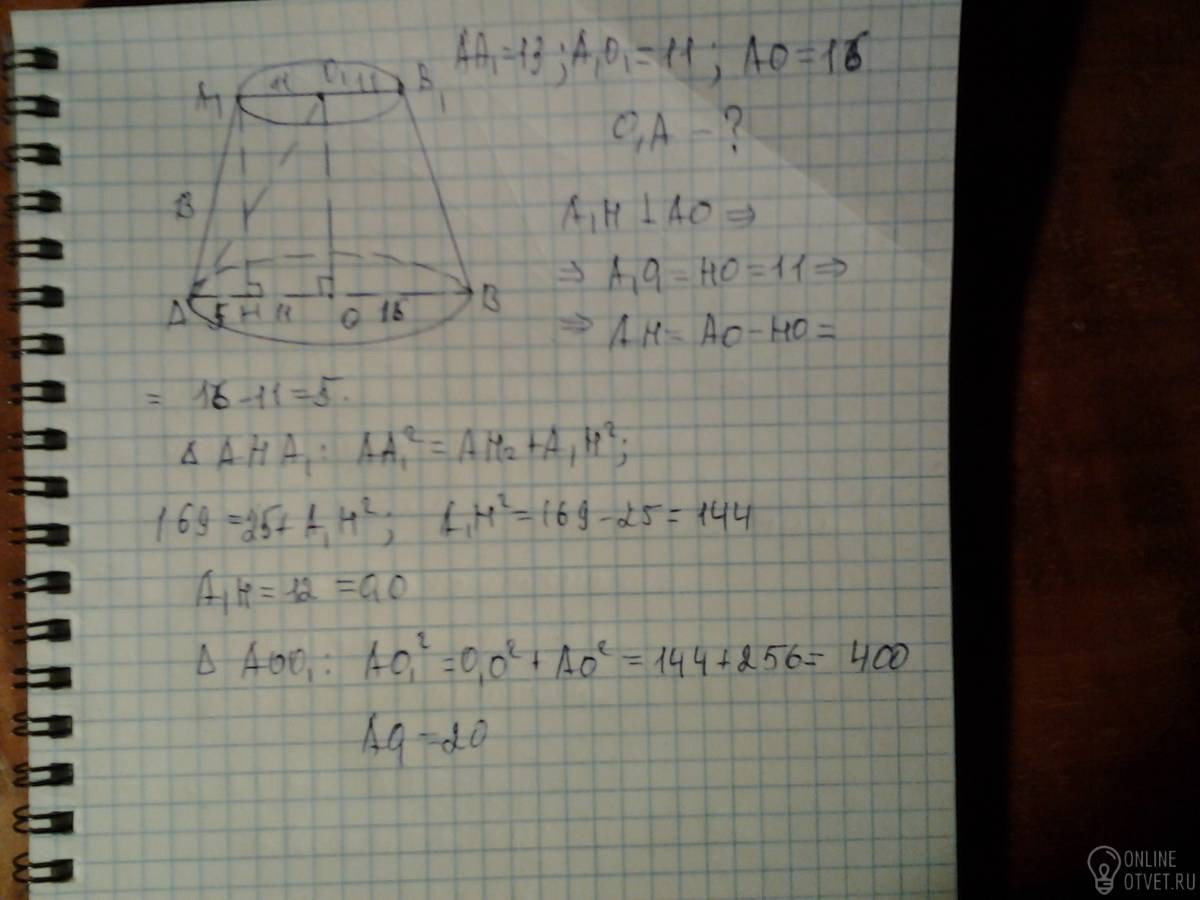 AA₁=13; A₁O₁=11; AO=16
O₁A - ?
A₁ 11 O₁ 11 B₁
13
A 5 H 11 O 16 B
A₁H ⊥ AO ⇒
⇒ A₁O₁ = HO = 11 ⇒
⇒ AH = AO - HO =
= 16 - 11 = 5.
Δ AHA₁: AA₁² = AH₂ + A₁H²;
169 = 25 + A₁H²; A₁H² = 169 - 25 = 144
A₁H = 12 = O₁O
Δ AOO₁: AO₁² = O₁O² + AO² = 144 + 256 = 400
AO₁ = 20
ONLINE
OTVET.RU